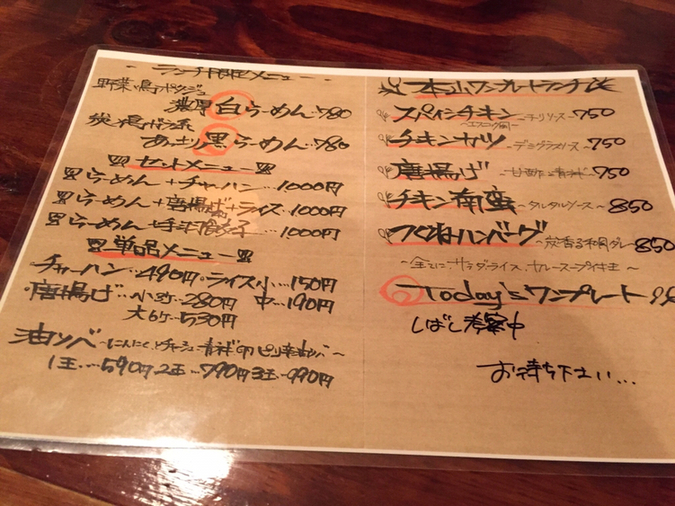 ランチ限定メニュー
野菜鶏ポタージュ
濃厚白らーめん…780
炭鶏ガラ系
あっさり黒らーめん…780
セットメニュー
らーめん+チャーハン…1000円
らーめん+唐揚げ+ライス…1000円
らーめん+手羽餃子…1000円
単品メニュー
・チャーハン…490円・ライス小…150円
・唐揚げ…小3ケ…280円 中…190円
大6ケ…530円
油ソバ～にんにくとチャーシュー青ネギ卵ピリ辛油ソバ～
1玉…590円 2玉…790円 3玉…990円
ワンプレートランチ
スパイシーチキン ～チリソース～750
チキンカツ ～デミグラソース～750
唐揚げ ～甘酢と青ネギ～750
チキン南蛮 ～タルタルソース～850
つくねハンバーグ ～炭香る和風ダレ～850
～全てにサラダ・ライス、カレースープ付き～
Today'sワンプレート
しばし考案中
お待ち下さい…